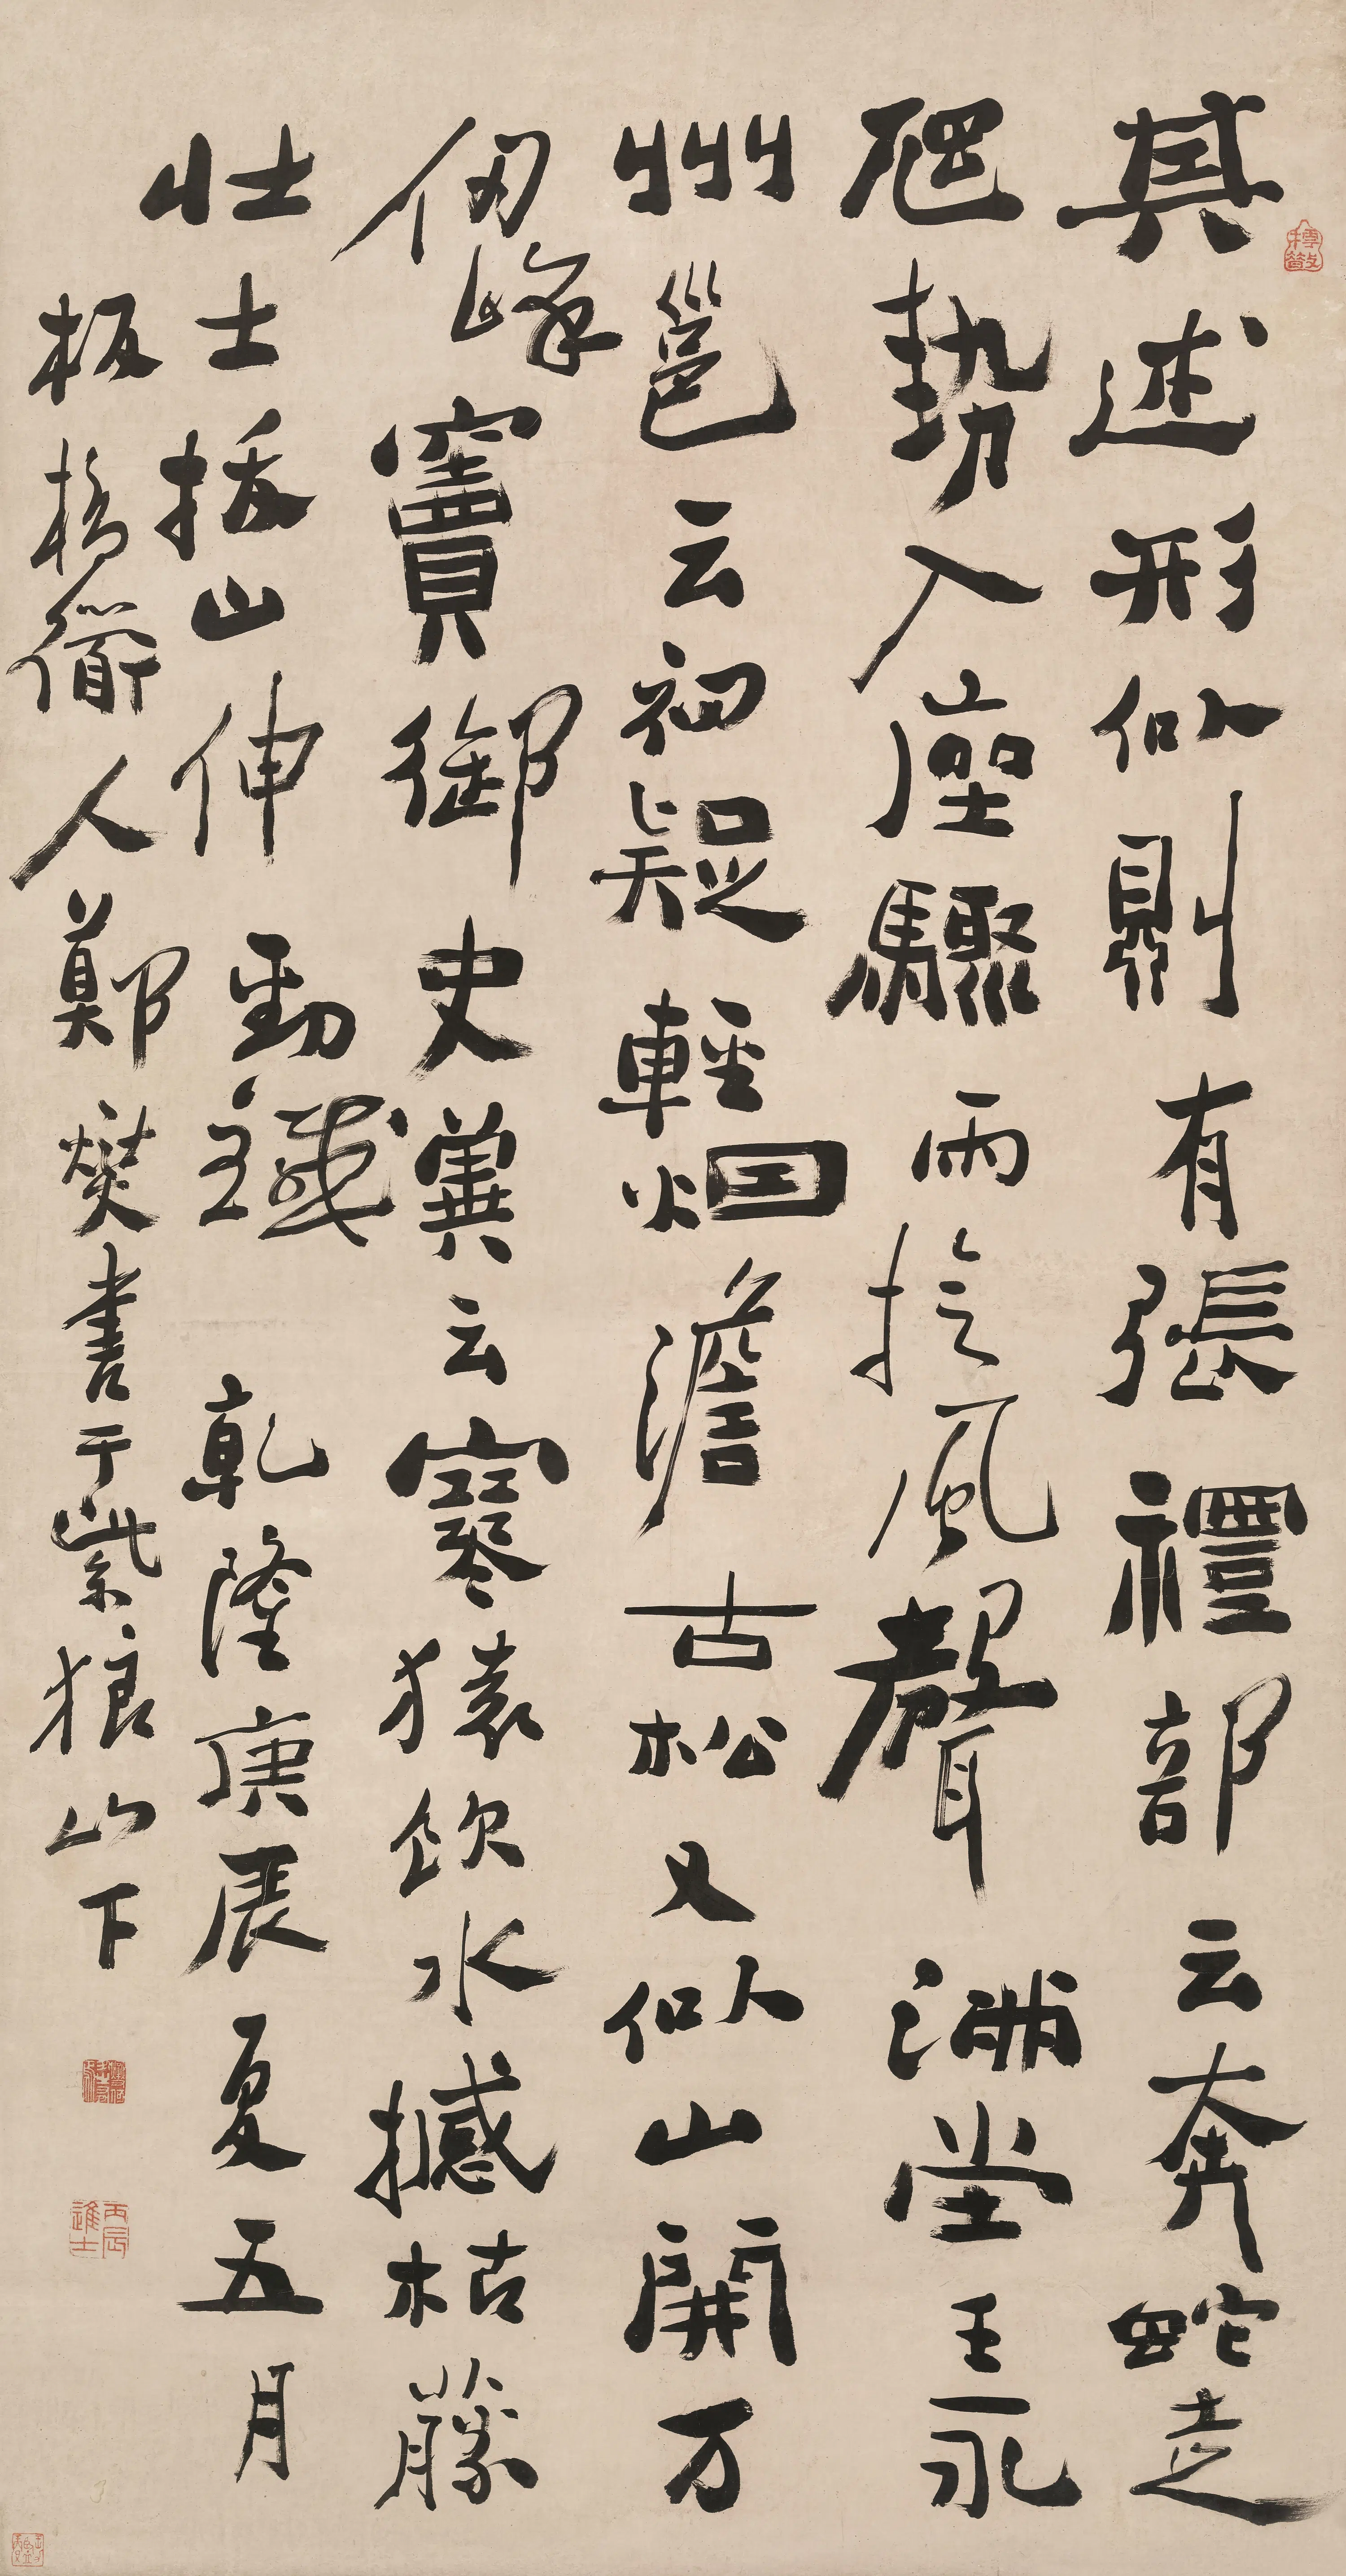 其述形似則有張禮部云奔蛇走
虺勢入座驟雨旋風聲滿堂王永
州邕云初疑輕烟澹古松又似山開万
仞峰竇御史冀云寒猿飲水撼枯藤
壮士拔山伸勁鐵 乾隆庚辰夏五月
板橋道人鄭燮書于紫狼山下
丙辰進士